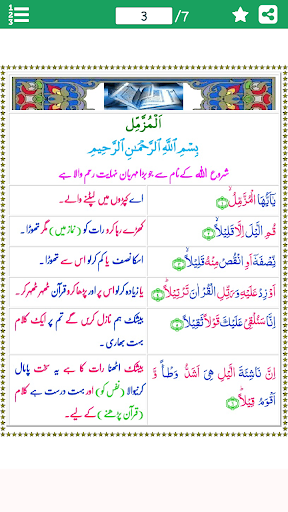 3 /7
اَلْمُزَّمِّل
بِسْمِ اللّٰهِ الرَّحْمٰنِ الرَّحِيْمِ
شروع اللہ کے نام سے جو بڑا مہربان نہایت رحم والا ہے
يٰۤاَيُّهَا الْمُزَّمِّلُۙ
اے کپڑوں میں لپٹنے والے۔
قُمِ الَّيْلَ اِلَّا قَلِيْلًاۙ
کھڑے رہا کرو رات کو (نماز میں) مگر تھوڑا۔
نِّصْفَهٗۤ اَوِ انْقُصْ مِنْهُ قَلِيْلًاۙ
اسکا نصف یا کم کرلو اس سے تھوڑا۔
اَوْ زِدْ عَلَيْهِ وَرَتِّلِ الْقُرْاٰنَ تَرْتِيْلًاؕ
یا زیادہ کرلو اس پر اور پڑھا کرو قرآن ٹھہر ٹھہر کر۔
اِنَّا سَنُلْقِىْ عَلَيْكَ قَوْلًا ثَقِيْلًا
بیشک ہم نازل کریں گے تم پر ایک کلام
بہت بھاری۔
اِنَّ نَاشِئَةَ الَّيْلِ هِىَ اَشَدُّ وَطْـاً وَّ
اَقْوَمُ قِيْلًاؕ
بیشک اٹھنا رات کا ہے یہ سخت پامال
کرنیوالا (نفس کو) اور بہت درست ہے کلام
(قرآن پڑھنے) کے لیے۔